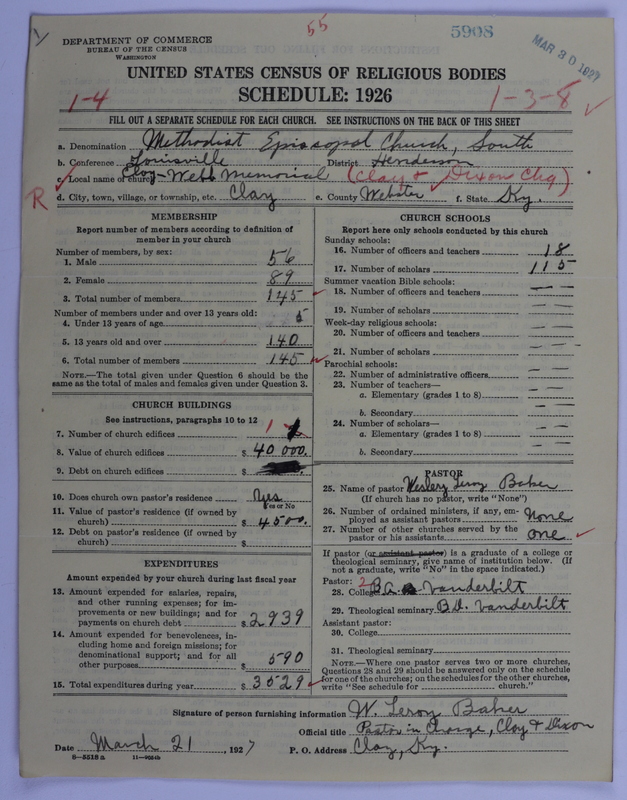 55
5908
MAR 30 1927
DEPARTMENT OF COMMERCE
BUREAU OF THE CENSUS
WASHINGTON
UNITED STATES CENSUS OF RELIGIOUS BODIES
SCHEDULE: 1926
1-4
1-3-8
FILL OUT A SEPARATE SCHEDULE FOR EACH CHURCH. SEE INSTRUCTIONS ON THE BACK OF THIS SHEET
a. Denomination Methodist Episcopal Church, South
b. Conference Louisville District Henderson
c. Local name of church Clay-Webb Memorial (Clay & Dixon Chg)
R
d. City, town, village, or township, etc. Clay e. County Webster f. State Ky.
MEMBERSHIP
Report number of members according to definition of
member in your church
Number of members, by sex:
1. Male 56
2. Female 89
3. Total number of members 145
Number of members under and over 13 years old:
4. Under 13 years of age 5
5. 13 years old and over 140
6. Total number of members 145
NOTE.—The total given under Question 6 should be the
same as the total of males and females given under Question 3.
CHURCH BUILDINGS
See instructions, paragraphs 10 to 12
7. Number of church edifices 1
8. Value of church edifices $ 40 000.
9. Debt on church edifices $
10. Does church own pastor's residence Yes
Yes or No
11. Value of pastor's residence (if owned by
church) $ 4500.
12. Debt on pastor's residence (if owned by
church) $
EXPENDITURES
Amount expended by your church during last fiscal year
13. Amount expended for salaries, repairs,
and other running expenses; for im-
provements or new buildings; and for
payments on church debt $ 2939
14. Amount expended for benevolences, in-
cluding home and foreign missions; for
denominational support; and for all
other purposes $ 590
15. Total expenditures during year $ 3529
CHURCH SCHOOLS
Report here only schools conducted by this church
Sunday schools:
16. Number of officers and teachers 18
17. Number of scholars 115
Summer vacation Bible schools:
18. Number of officers and teachers — —
19. Number of scholars — —
Week-day religious schools:
20. Number of officers and teachers — —
21. Number of scholars — —
Parochial schools:
22. Number of administrative officers — —
23. Number of teachers—
a. Elementary (grades 1 to 8) — —
b. Secondary — —
24. Number of scholars—
a. Elementary (grades 1 to 8) — —
b. Secondary — —
PASTOR
25. Name of pastor Wesley Leroy Baker
(If church has no pastor, write "None")
26. Number of ordained ministers, if any, em-
ployed as assistant pastors None
27. Number of other churches served by the
pastor or his assistants one
If pastor (or assistant pastor) is a graduate of a college or
theological seminary, give name of institution below. (If
not a graduate, write "No" in the space indicated.)
Pastor: 2
28. College B.A. Vanderbilt
29. Theological seminary B.D. Vanderbilt
Assistant pastor:
30. College
31. Theological seminary
NOTE.—Where one pastor serves two or more churches,
Questions 28 and 29 should be answered only on the schedule
for one of the churches; on the schedules for the other churches,
write "See schedule for church."
Signature of person furnishing information W. Leroy Baker
Official title Pastor in Charge, Clay & Dixon
Date March 21, 1927 P. O. Address Clay, Ky.